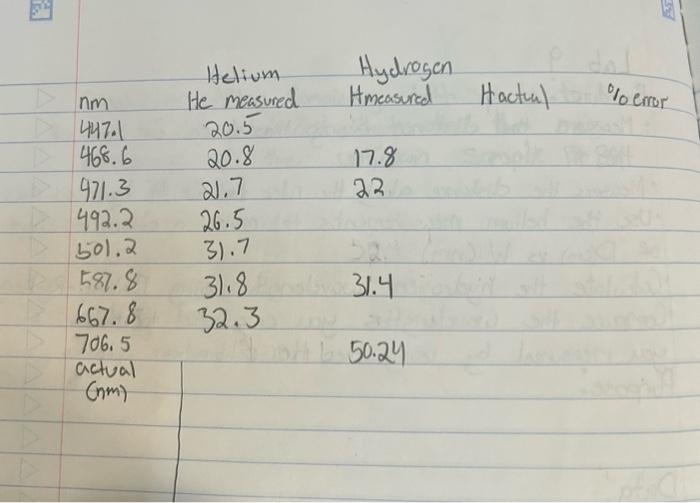 Helium Hydrogen
nm He measured Hmeasured Hactual % error
447.1 20.5
468.6 20.8 17.8
471.3 21.7 22
492.2 26.5
501.2 31.7
587.8 31.8 31.4
667.8 32.3
706.5 50.24
actual
(nm)